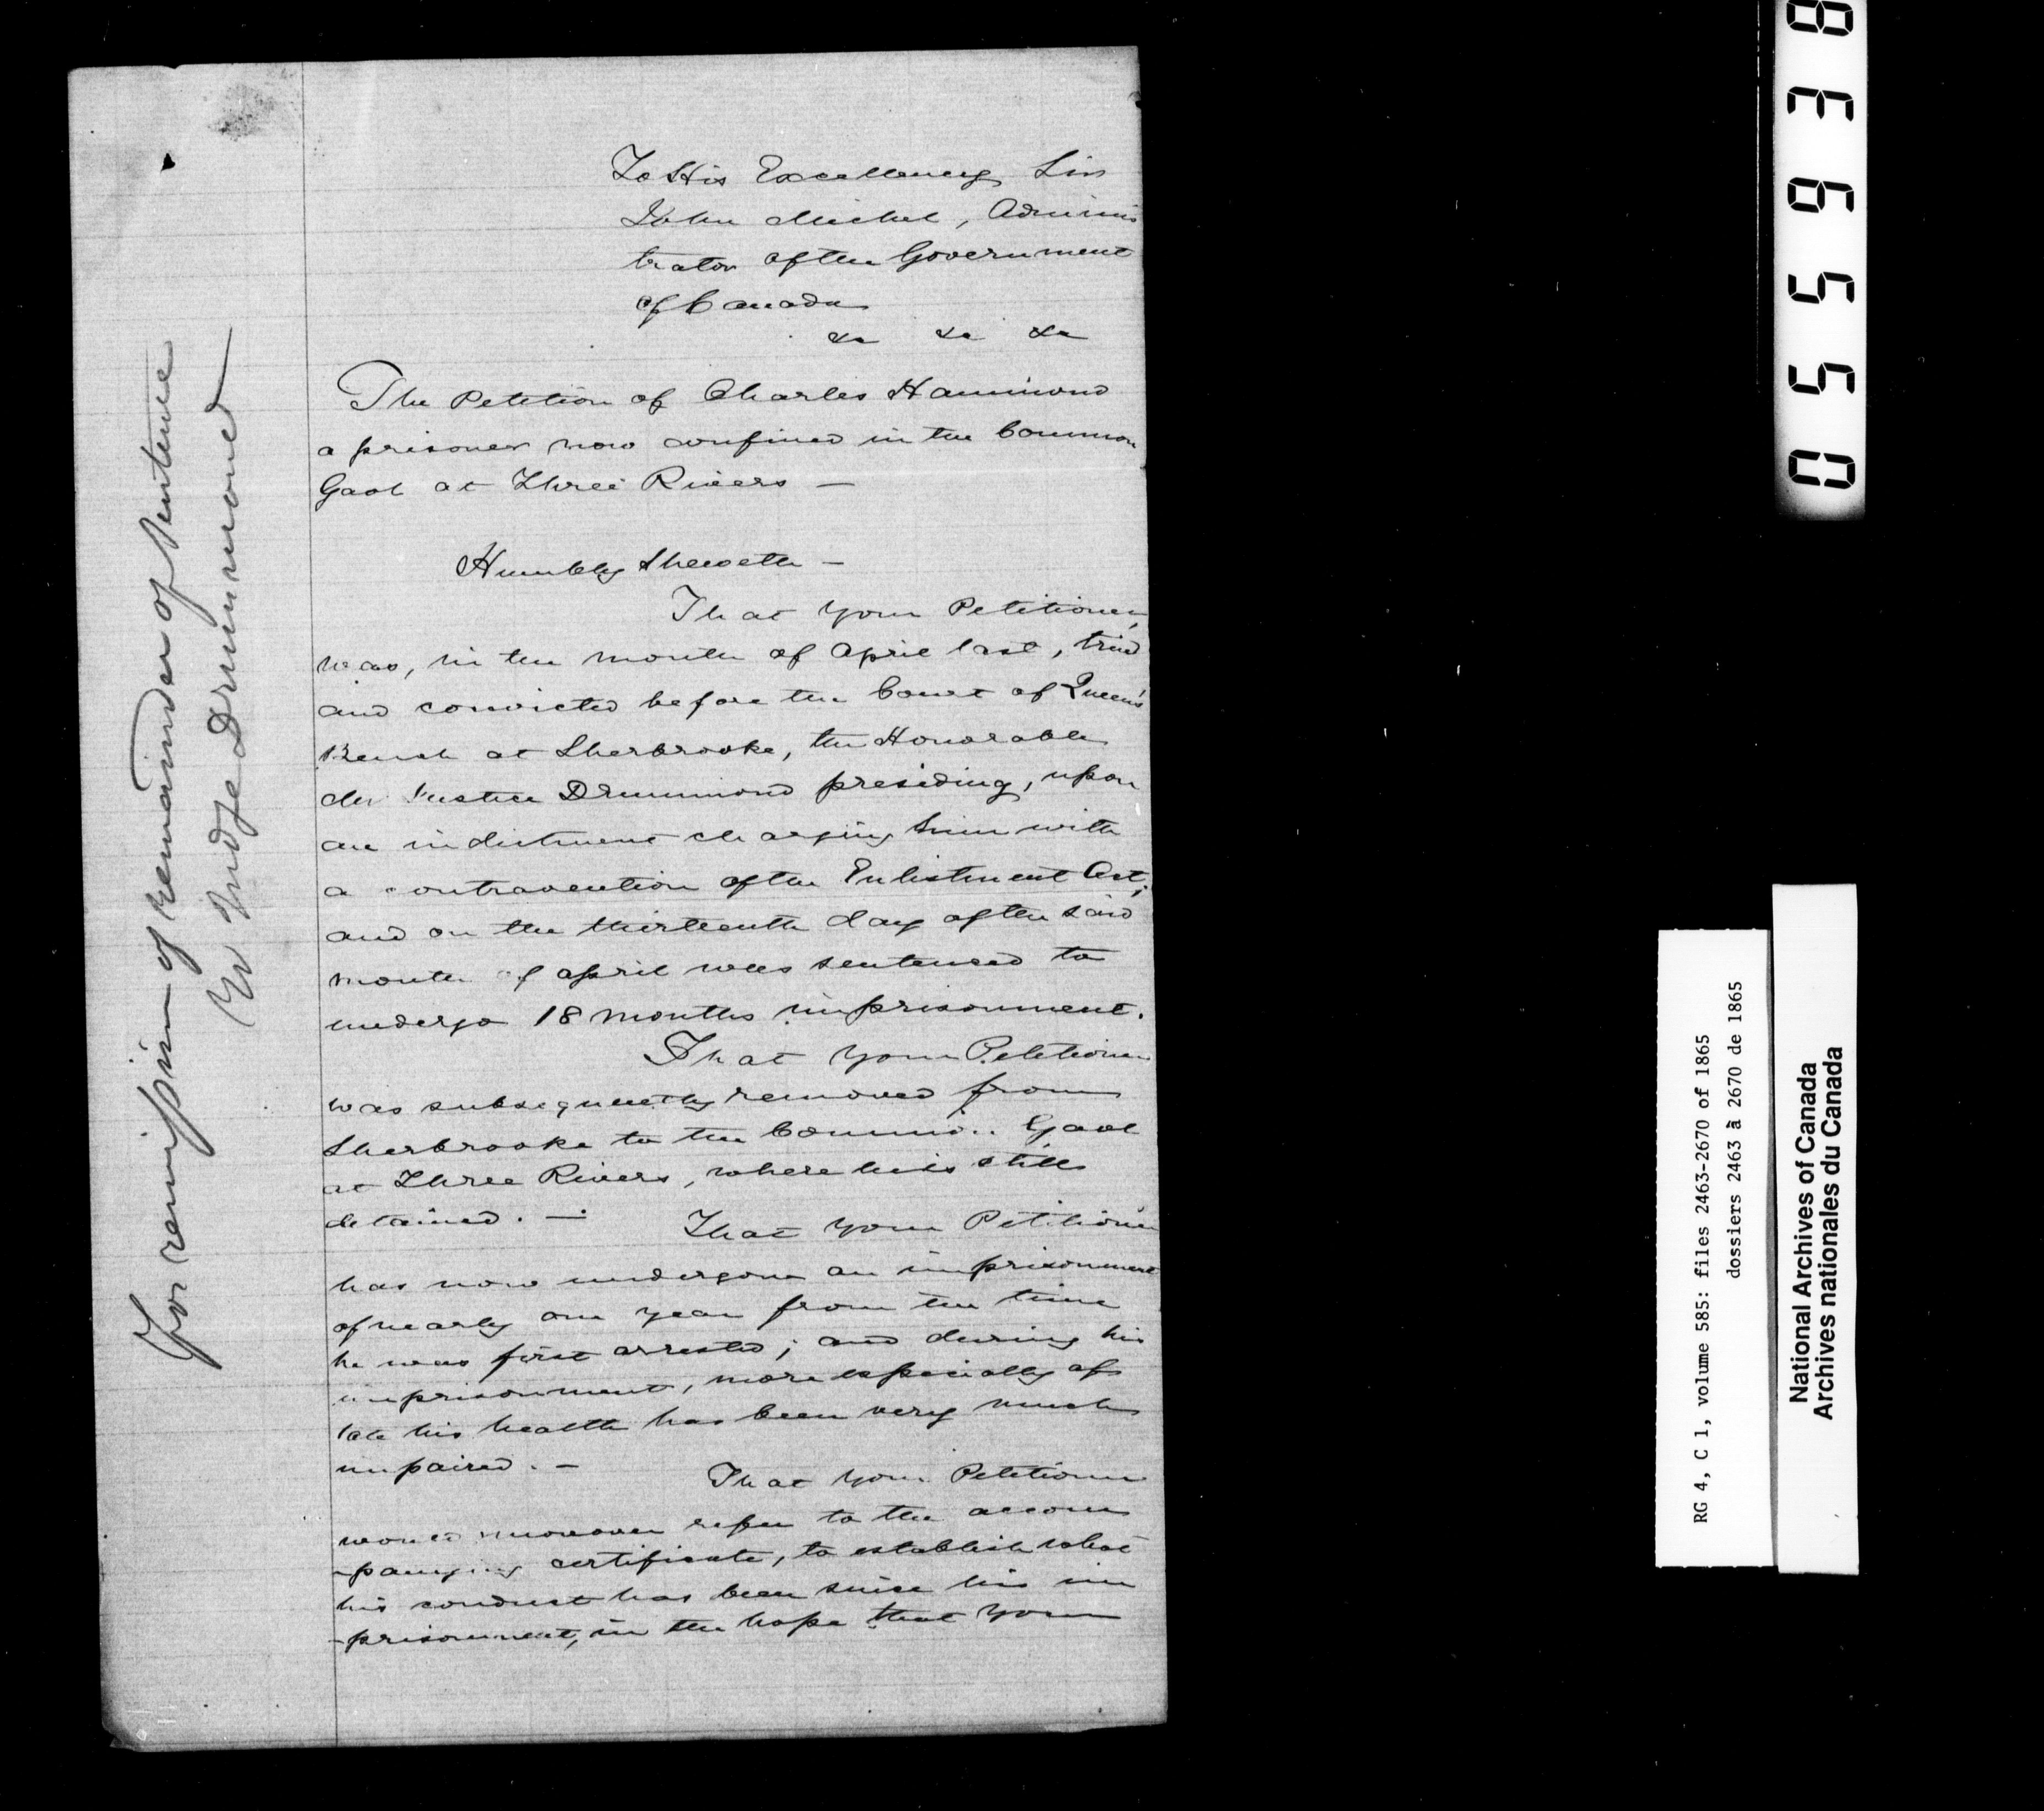 To His Excellency Sir
John Michel, Adminis
trator of the Government
of Canada
&c &c &c
The Petition of Charles Hammond
a prisoner now confined in the Common
Gaol at Three Rivers —
Humbly Sheweth —
That your Petitioner,
was, in the month of April last, tried
and convicted before the Court of Queen's
Bench at Sherbrooke, the Honorable
Mr Justice Drummond presiding, upon
an indictment charging him with
a contravention of the Enlistment Act;
and on the thirteenth day of the said
month of April was sentenced to
undergo 18 months imprisonment.
That your Petitioner
was subsequently removed from
Sherbrooke to the Common Gaol
at Three Rivers, where he is still
detained. —
That your Petitioner
has now undergone an imprisonment
of nearly one year from the time
he was first arrested; and during his
imprisonment, more especially of
late his health has been very much
impaired. —
That your Petitioner
would moreover refer to the accom
-panying certificate, to establish what
his conduct has been since his im
-prisonment, in the hope that your
For remission of remainder of sentence
Judge Drummond
055938
RG 4, C 1, volume 585: files 2463-2670 of 1865
dossiers 2463 à 2670 de 1865
National Archives of Canada
Archives nationales du Canada